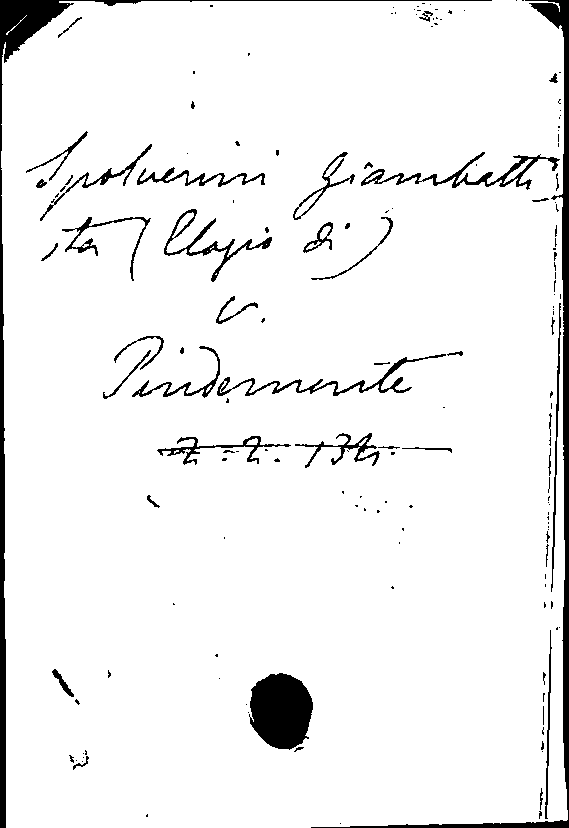 Spolverini Giambatti
sta (Elogio di)
v.
Pindemonte
Z. 2. 134.